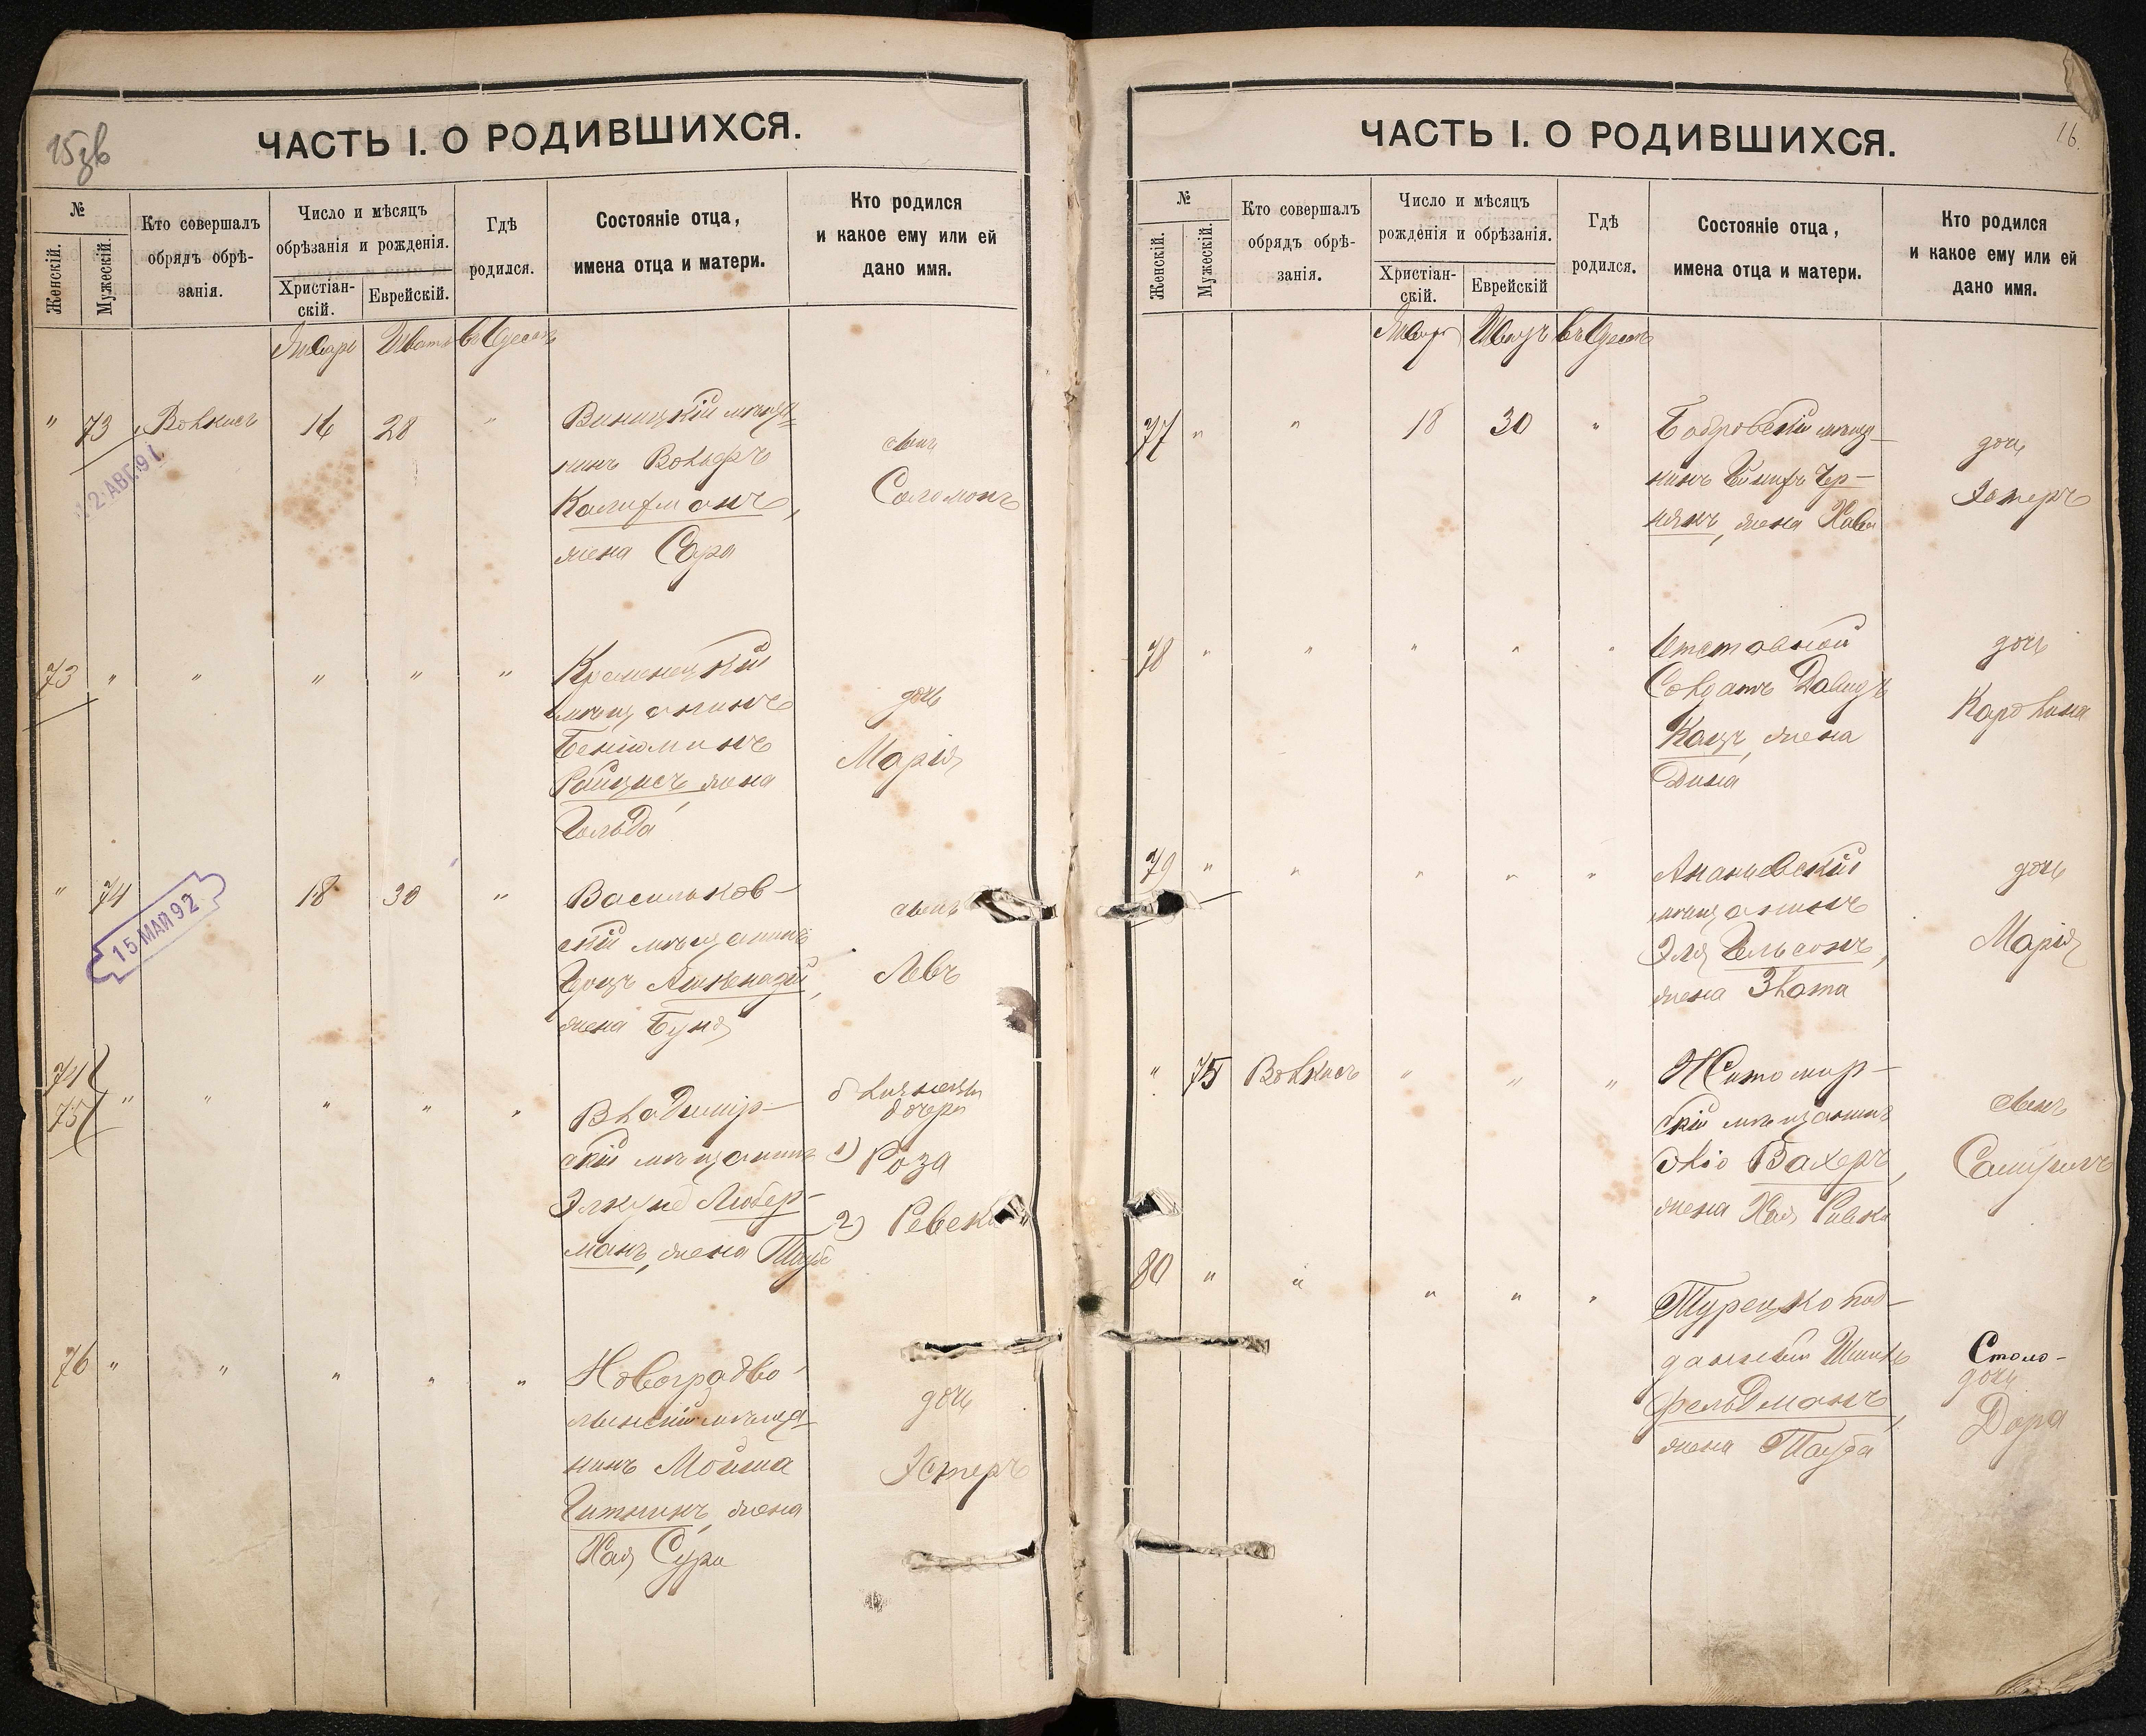 15 зв
ЧАСТЬ I. О РОДИВШИХСЯ.
№
Женскій.
Мужескій.
Кто совершалъ
обрядъ обрѣ-
занія.
Число и мѣсяцъ
обрѣзанія и рожденія.
Христіан-
скій.
Еврейскій.
Гдѣ
родился.
Состояніе отца,
имена отца и матери.
Кто родился
и какое ему или ей
дано имя.
Январь Шватъ въ Одессѣ
" 73 Волкисъ 16 28 "
Виницкій мѣща-
нинъ Вольфъ
Калифманъ,
жена Сура
сынъ
Соломонъ
2 АВГ. 91
73 " " " " "
Кременецкій
мѣщанинъ
Беніоминъ
жена
Гольда
дочь
Марія
" 74 18 30 "
15 МАЙ 92
Васильков-
скій мѣщанинъ
Ашкенази,
жена Буня
сынъ
Левъ
74
75 " " " " "
Владимір-
скій мѣщанинъ
Элкуно Либер-
манъ, жена Тауба
близнецы
дочери
1) Роза
2) Ревека
76 " " " " "
Новоградво-
лынскій мѣща-
нинъ Мойша
Гитникъ, жена
Хая Сура
дочь
Эстеръ
16.
ЧАСТЬ I. О РОДИВШИХСЯ.
№
Женскій.
Мужескій.
Кто совершалъ
обрядъ обрѣ-
занія.
Число и мѣсяцъ
рожденія и обрѣзанія.
Христіан-
скій.
Еврейскій
Гдѣ
родился.
Состояніе отца,
имена отца и матери.
Кто родился
и какое ему или ей
дано имя.
Январь Шватъ въ Одессѣ
77 " " 18 30 "
Бобровскій мѣща-
нинъ Чер-
някъ, жена Хава
дочь
Эстеръ
78 " " " " "
Отставной
Солдатъ Давидъ
Кацъ, жена
Дина
дочь
Каролина
79 " " " " "
Ананьевскій
мѣщанинъ
Эля Гельсонъ,
жена Злота
дочь
Марія
" 75 Волкисъ " " "
Житомир-
скій мѣщанинъ
Бахеръ,
жена Хая Ривка
сынъ
Самуилъ
80 " " " " "
Турецко под-
данный
Фельдманъ,
жена Тауба
Столо-
дочь
Дора